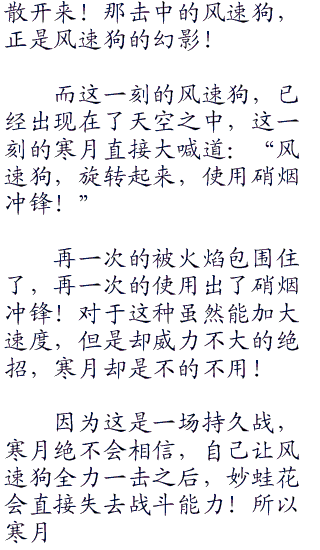 散开来！那击中的风速狗，
正是风速狗的幻影！
而这一刻的风速狗，已
经出现在了天空之中，这一
刻的寒月直接大喊道：“风
速狗，旋转起来，使用硝烟
冲锋！”
再一次的被火焰包围住
了，再一次的使用出了硝烟
冲锋！对于这种虽然能加大
速度，但是却威力不大的绝
招，寒月却是不的不用！
因为这是一场持久战，
寒月绝不会相信，自己让风
速狗全力一击之后，妙蛙花
会直接失去战斗能力！所以
寒月